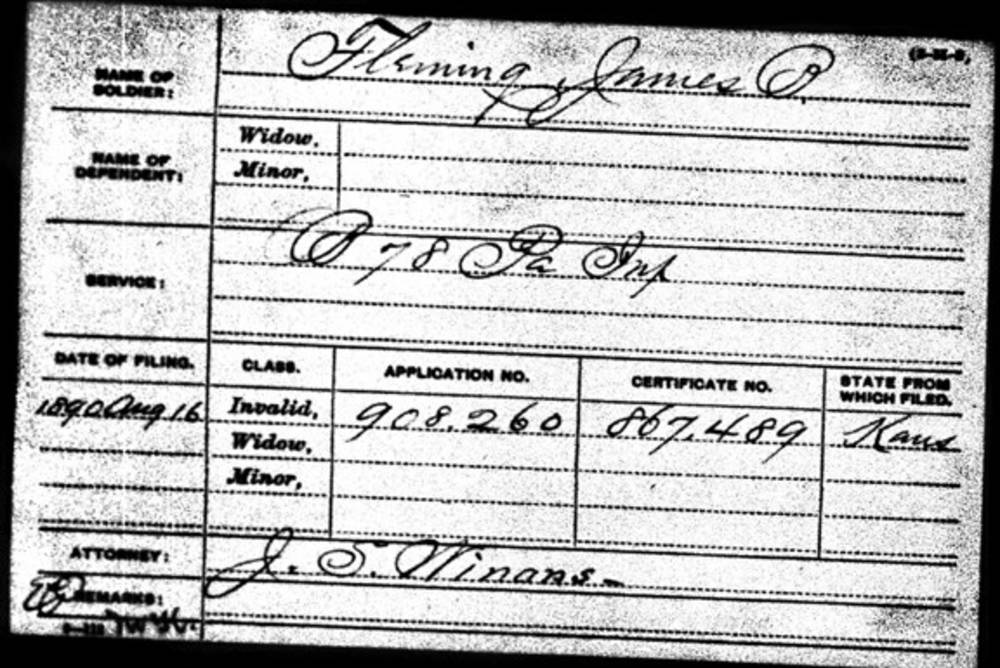 (3-M-9)
NAME OF SOLDIER: Fleming, James P.
NAME OF DEPENDENT: Widow,
Minor,
SERVICE: 78 Pa Inf
DATE OF FILING. CLASS. APPLICATION NO. CERTIFICATE NO. STATE FROM WHICH FILED.
1890 Aug 16 Invalid, 908.260 867.489 Kans
Widow,
Minor,
ATTORNEY: J. S. Winans
REMARKS: